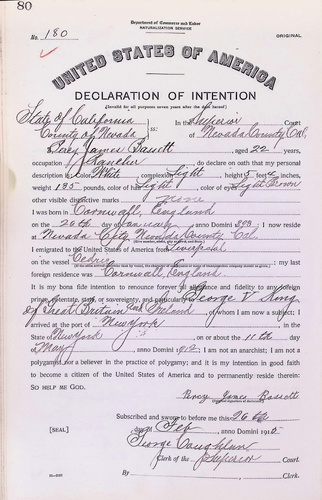 80
Department of Commerce and Labor
NATURALIZATION SERVICE
No. 180
ORIGINAL
UNITED STATES OF AMERICA
DECLARATION OF INTENTION
(Invalid for all purposes seven years after the date hereof)
State of California
County of Nevada
ss:
In the Superior Court
of Nevada County, Cal.
I, Percy James Bassett, aged 22 years,
occupation Rancher, do declare on oath that my personal
description is: Color White, complexion Light, height 5 feet inches,
weight 135 pounds, color of hair Light, color of eyes Light Brown
other visible distinctive marks None
I was born in Cornwall, England
on the 26th day of January, anno Domini 1893; I now reside
at Nevada City, Nevada County, Cal.
I emigrated to the United States of America from Liverpool
on the vessel Cedric; my last
foreign residence was Cornwall, England.
It is my bona fide intention to renounce forever all allegiance and fidelity to any foreign
prince, potentate, state, or sovereignty, and particularly to George V King
of Great Britain and Ireland, of whom I am now a subject; I
arrived at the port of New York, in the
State of New York, on or about the 11th day
of May, anno Domini 1912; I am not an anarchist; I am not a
polygamist nor a believer in the practice of polygamy; and it is my intention in good faith
to become a citizen of the United States of America and to permanently reside therein:
SO HELP ME GOD.
Percy James Bassett
Subscribed and sworn to before me this 26th
[SEAL]
day of Feb, anno Domini 1915
George Coughlan
Clerk of the Superior Court.
By, Clerk.